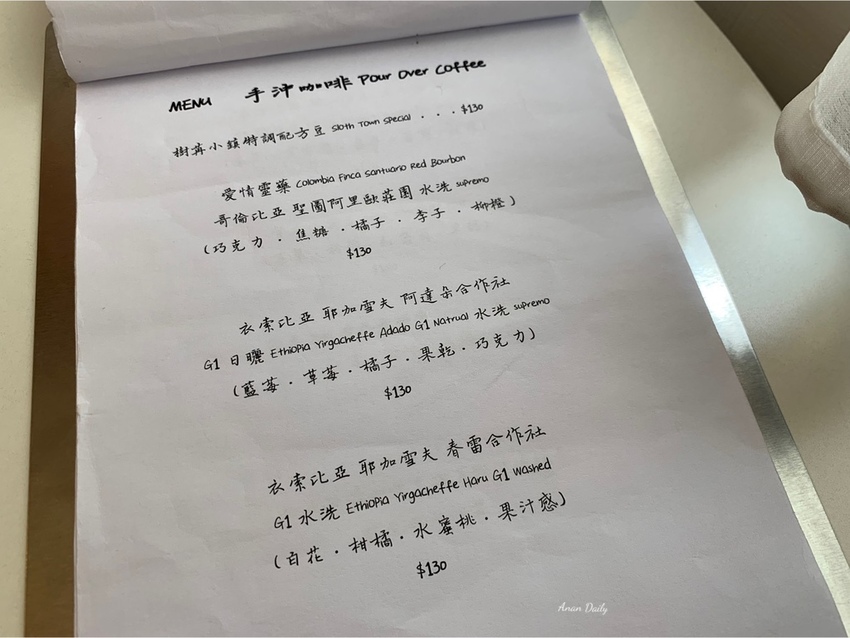 MENU 手沖咖啡 Pour Over Coffee
樹苒小鎮特調配方豆 Sloth Town Special . . . $130
愛情靈藥 Colombia Finca Santuario Red Bourbon
哥倫比亞 聖圖阿里歐莊園 水洗 supremo
(巧克力 · 焦糖 · 橘子 · 李子 · 柳橙)
$130
衣索比亞 耶加雪夫 阿達朵合作社
G1 日曬 Ethiopia Yirgacheffe Adado G1 Natrual 水洗 supremo
(藍莓 · 草莓 · 橘子 · 果乾 · 巧克力)
$130
衣索比亞 耶加雪夫 春雷合作社
G1 水洗 Ethiopia Yirgacheffe Haru G1 Washed
(百花 · 柑橘 · 水蜜桃 · 果汁感)
$130
Anan Daily